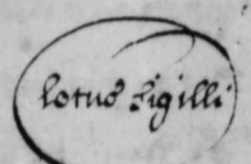 lotus sigilli